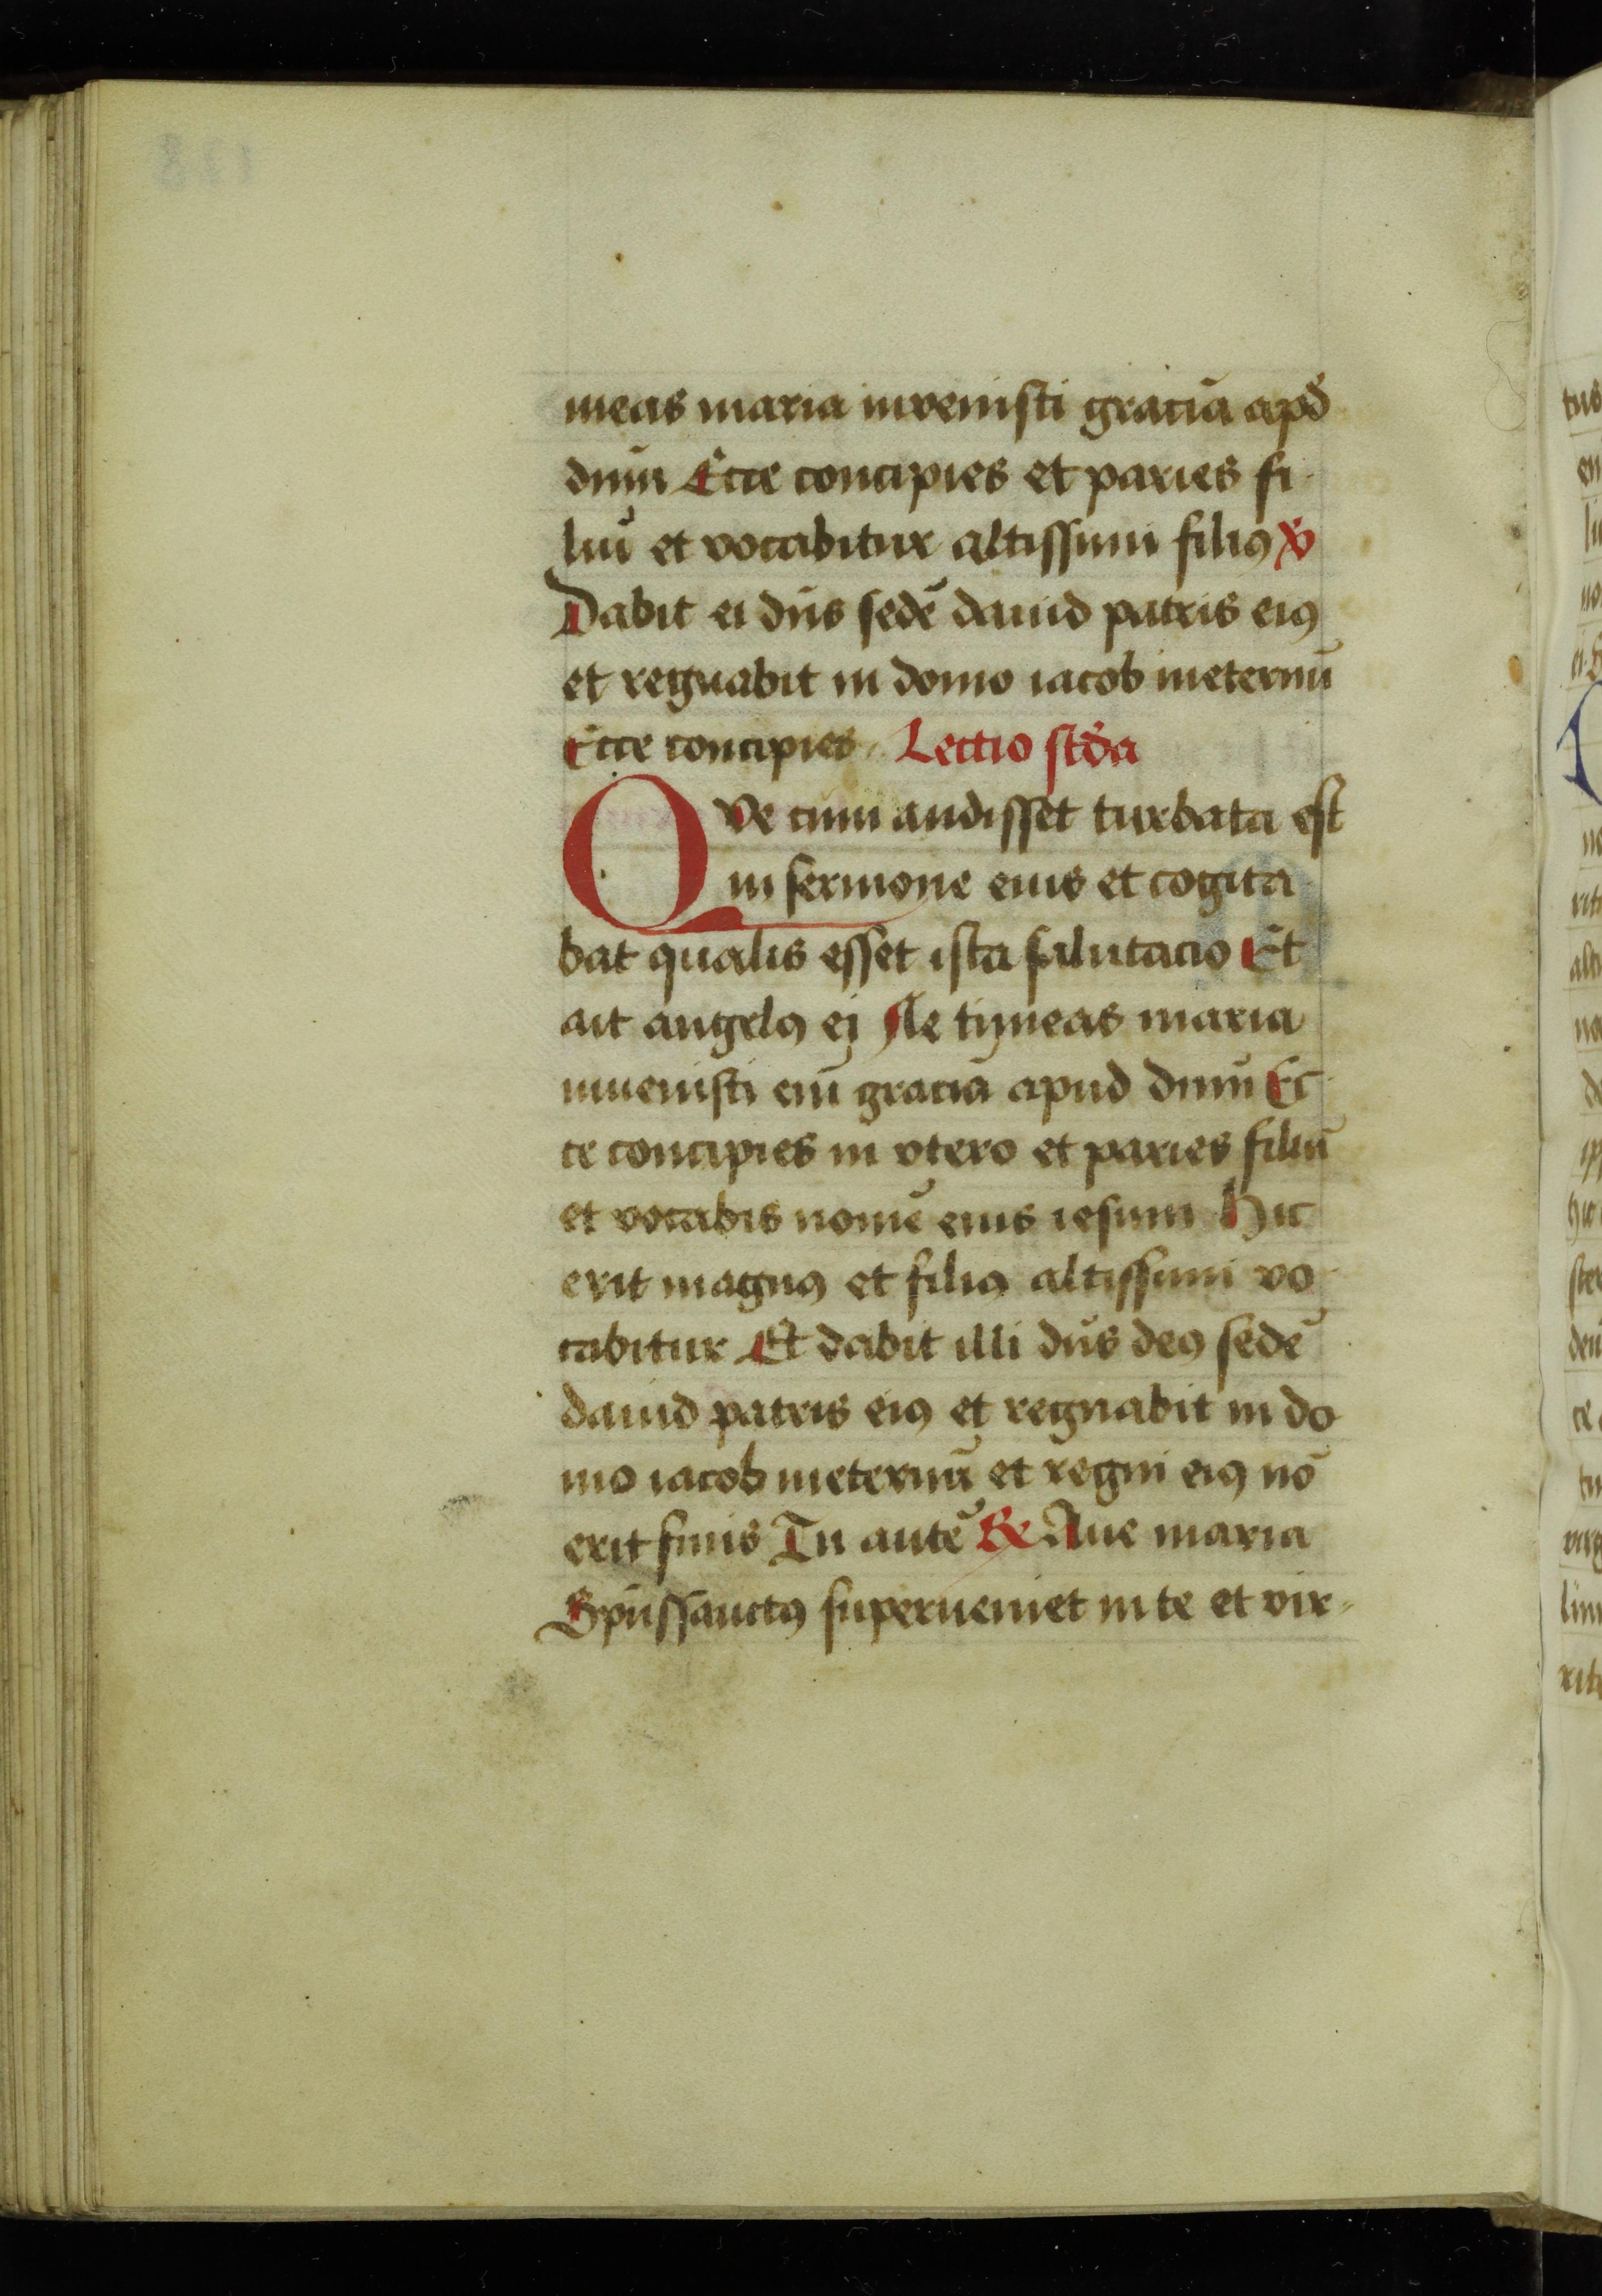 meas maria invenisti graciā apd̄
dnm̄ Ecce concipies et paries fi
liū et vocabitur altissimi filiꝰ ℣
Dabit ei dn̄s sedē dauid patris eiꝰ
et regnabit in domo iacob ineternū
Ecce concipies Lectio scd̄a
Qve cum audisset turbata est
in sermone eius et cogita
bat qualis esset ista salutacio Et
ait angelꝰ ej Ne timeas maria
inuenisti em̄ graciā apud dnm̄ Ec
ce concipies in vtero et paries filiū
et vocabis nomē eius iesum Hic
erit magnꝰ et filiꝰ altissimi vo
cabitur Et dabit illi dn̄s deꝰ sedē
dauid patris eiꝰ et regnabit in do
mo iacob ineternū et regni eiꝰ nō
erit finis Tu autē ℟ Aue maria
Sp̄ussanctꝰ superueniet in te et vir